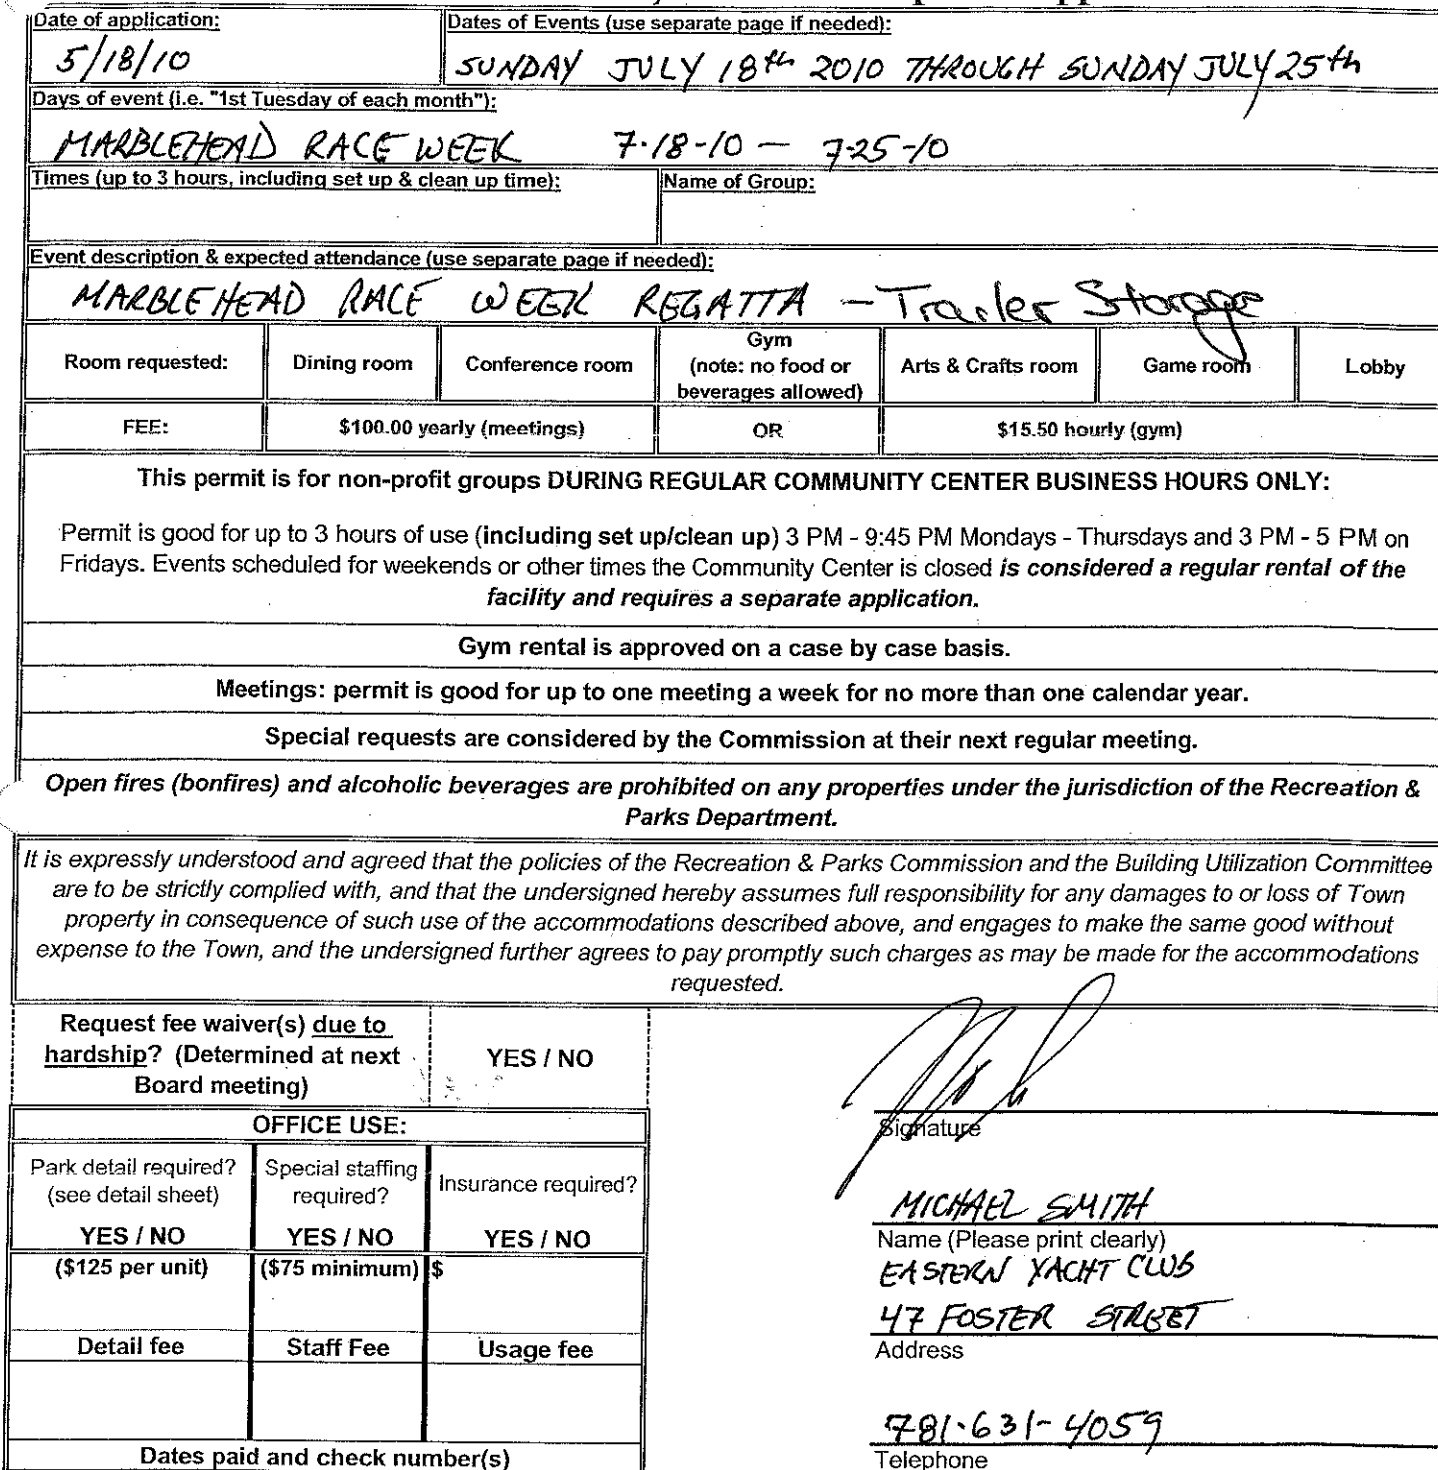 Date of application:
5/18/10
Dates of Events (use separate page if needed):
SUNDAY JULY 18th 2010 THROUGH SUNDAY JULY 25th
Days of event (i.e. "1st Tuesday of each month"):
MARBLEHEAD RACE WEEK 7-18-10 — 7-25-10
Times (up to 3 hours, including set up & clean up time):
Name of Group:
Event description & expected attendance (use separate page if needed):
MARBLEHEAD RACE WEEK REGATTA - Trailer Storage
Room requested:
Dining room
Conference room
Gym
(note: no food or
beverages allowed)
Arts & Crafts room
Game room
Lobby
FEE:
$100.00 yearly (meetings)
OR
$15.50 hourly (gym)
This permit is for non-profit groups DURING REGULAR COMMUNITY CENTER BUSINESS HOURS ONLY:
Permit is good for up to 3 hours of use (including set up/clean up) 3 PM - 9:45 PM Mondays - Thursdays and 3 PM - 5 PM on
Fridays. Events scheduled for weekends or other times the Community Center is closed is considered a regular rental of the
facility and requires a separate application.
Gym rental is approved on a case by case basis.
Meetings: permit is good for up to one meeting a week for no more than one calendar year.
Special requests are considered by the Commission at their next regular meeting.
Open fires (bonfires) and alcoholic beverages are prohibited on any properties under the jurisdiction of the Recreation &
Parks Department.
It is expressly understood and agreed that the policies of the Recreation & Parks Commission and the Building Utilization Committee
are to be strictly complied with, and that the undersigned hereby assumes full responsibility for any damages to or loss of Town
property in consequence of such use of the accommodations described above, and engages to make the same good without
expense to the Town, and the undersigned further agrees to pay promptly such charges as may be made for the accommodations
requested.
Request fee waiver(s) due to
hardship? (Determined at next
Board meeting)
YES / NO
OFFICE USE:
Park detail required?
(see detail sheet)
YES / NO
Special staffing
required?
YES / NO
Insurance required?
YES / NO
($125 per unit)
($75 minimum)
$
Detail fee
Staff Fee
Usage fee
Dates paid and check number(s)
Signature
MICHAEL SMITH
Name (Please print clearly)
EASTERN YACHT CLUB
47 FOSTER STREET
Address
781-631-4059
Telephone